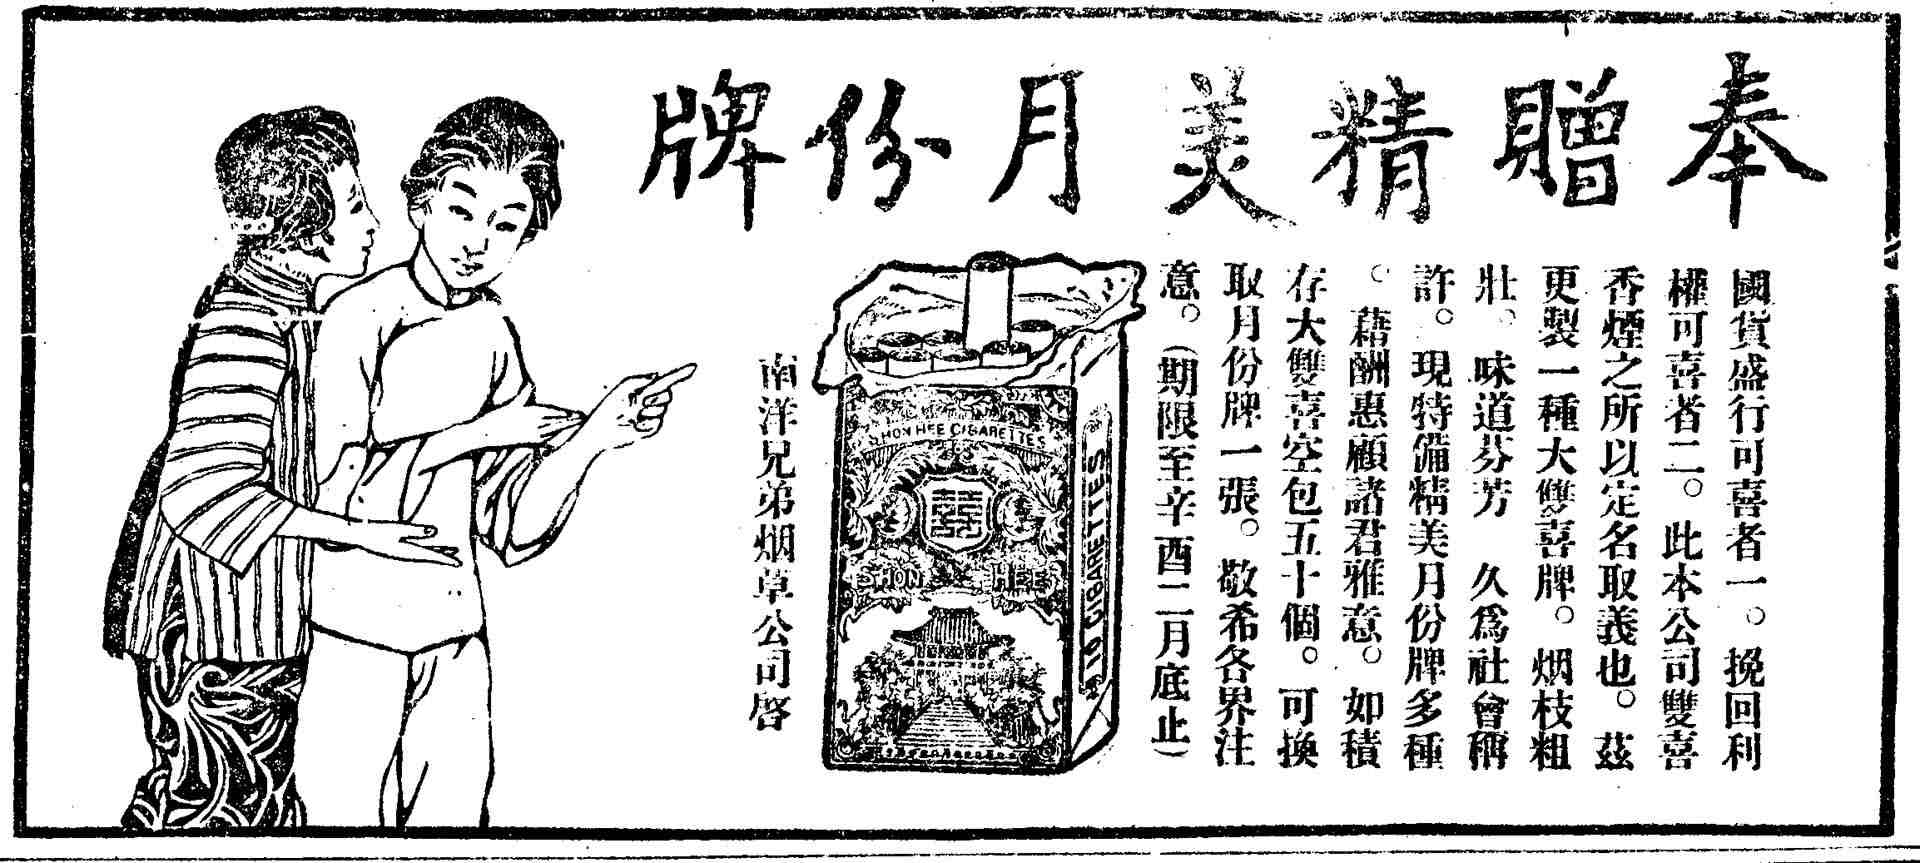 奉贈精美月份牌
國貨盛行可喜者一。挽回利
權可喜者二。此本公司雙喜
香煙之所以定名取義也。茲
更製一種大雙喜牌。烟枝粗
壯。味道芬芳　久爲社會稱
許。現特備精美月份牌多種
。藉酬惠顧諸君雅意。如積
存大雙喜空包五十個。可換
取月份牌一張。敬希各界注
意。（期限至辛酉二月底止）
SHON HEE CIGARETTES
囍
SHON HEE
10 CIGARETTES
南洋兄弟烟草公司啓